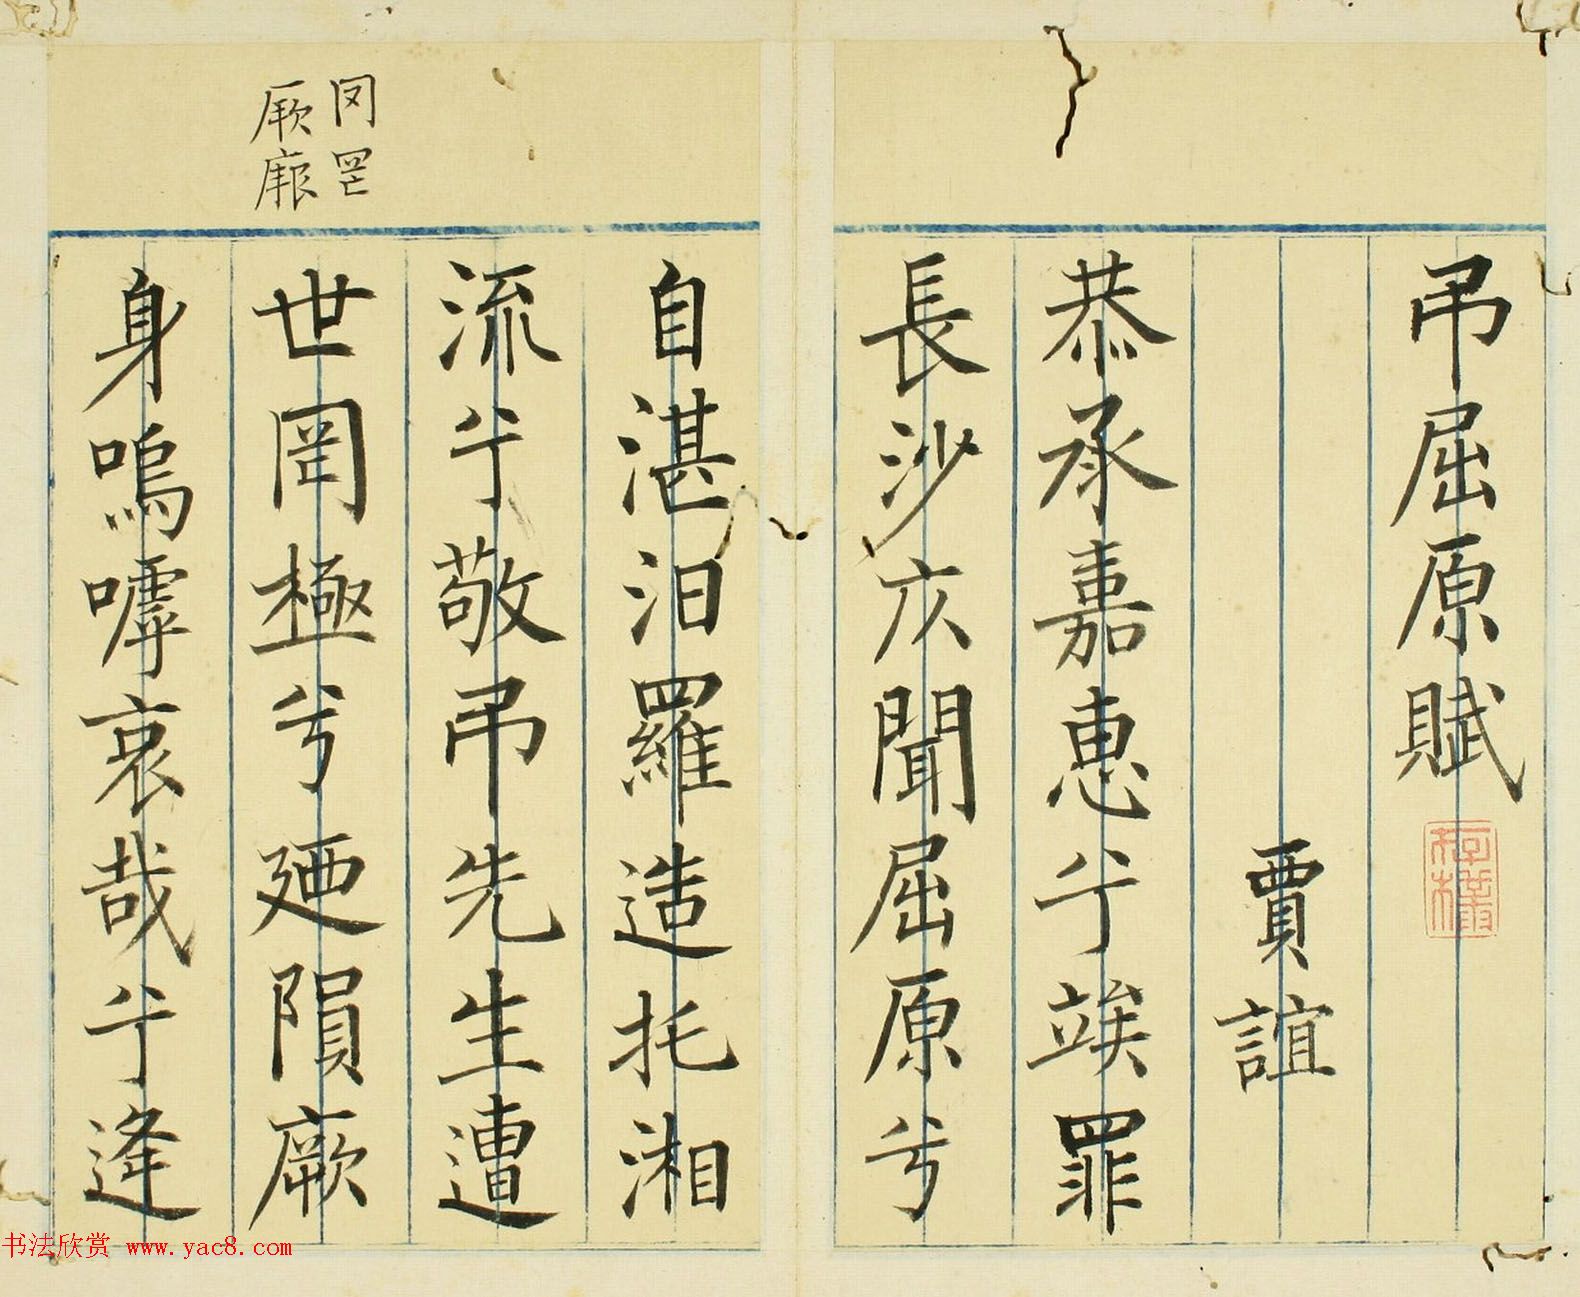 吊屈原賦
賈誼
恭承嘉惠兮竢罪
長沙仄聞屈原兮
自湛汨羅造托湘
流兮敬吊先生遭
世罔極兮廼隕厥
身嗚嘑哀哉兮逢
书法欣赏 www.yac8.com